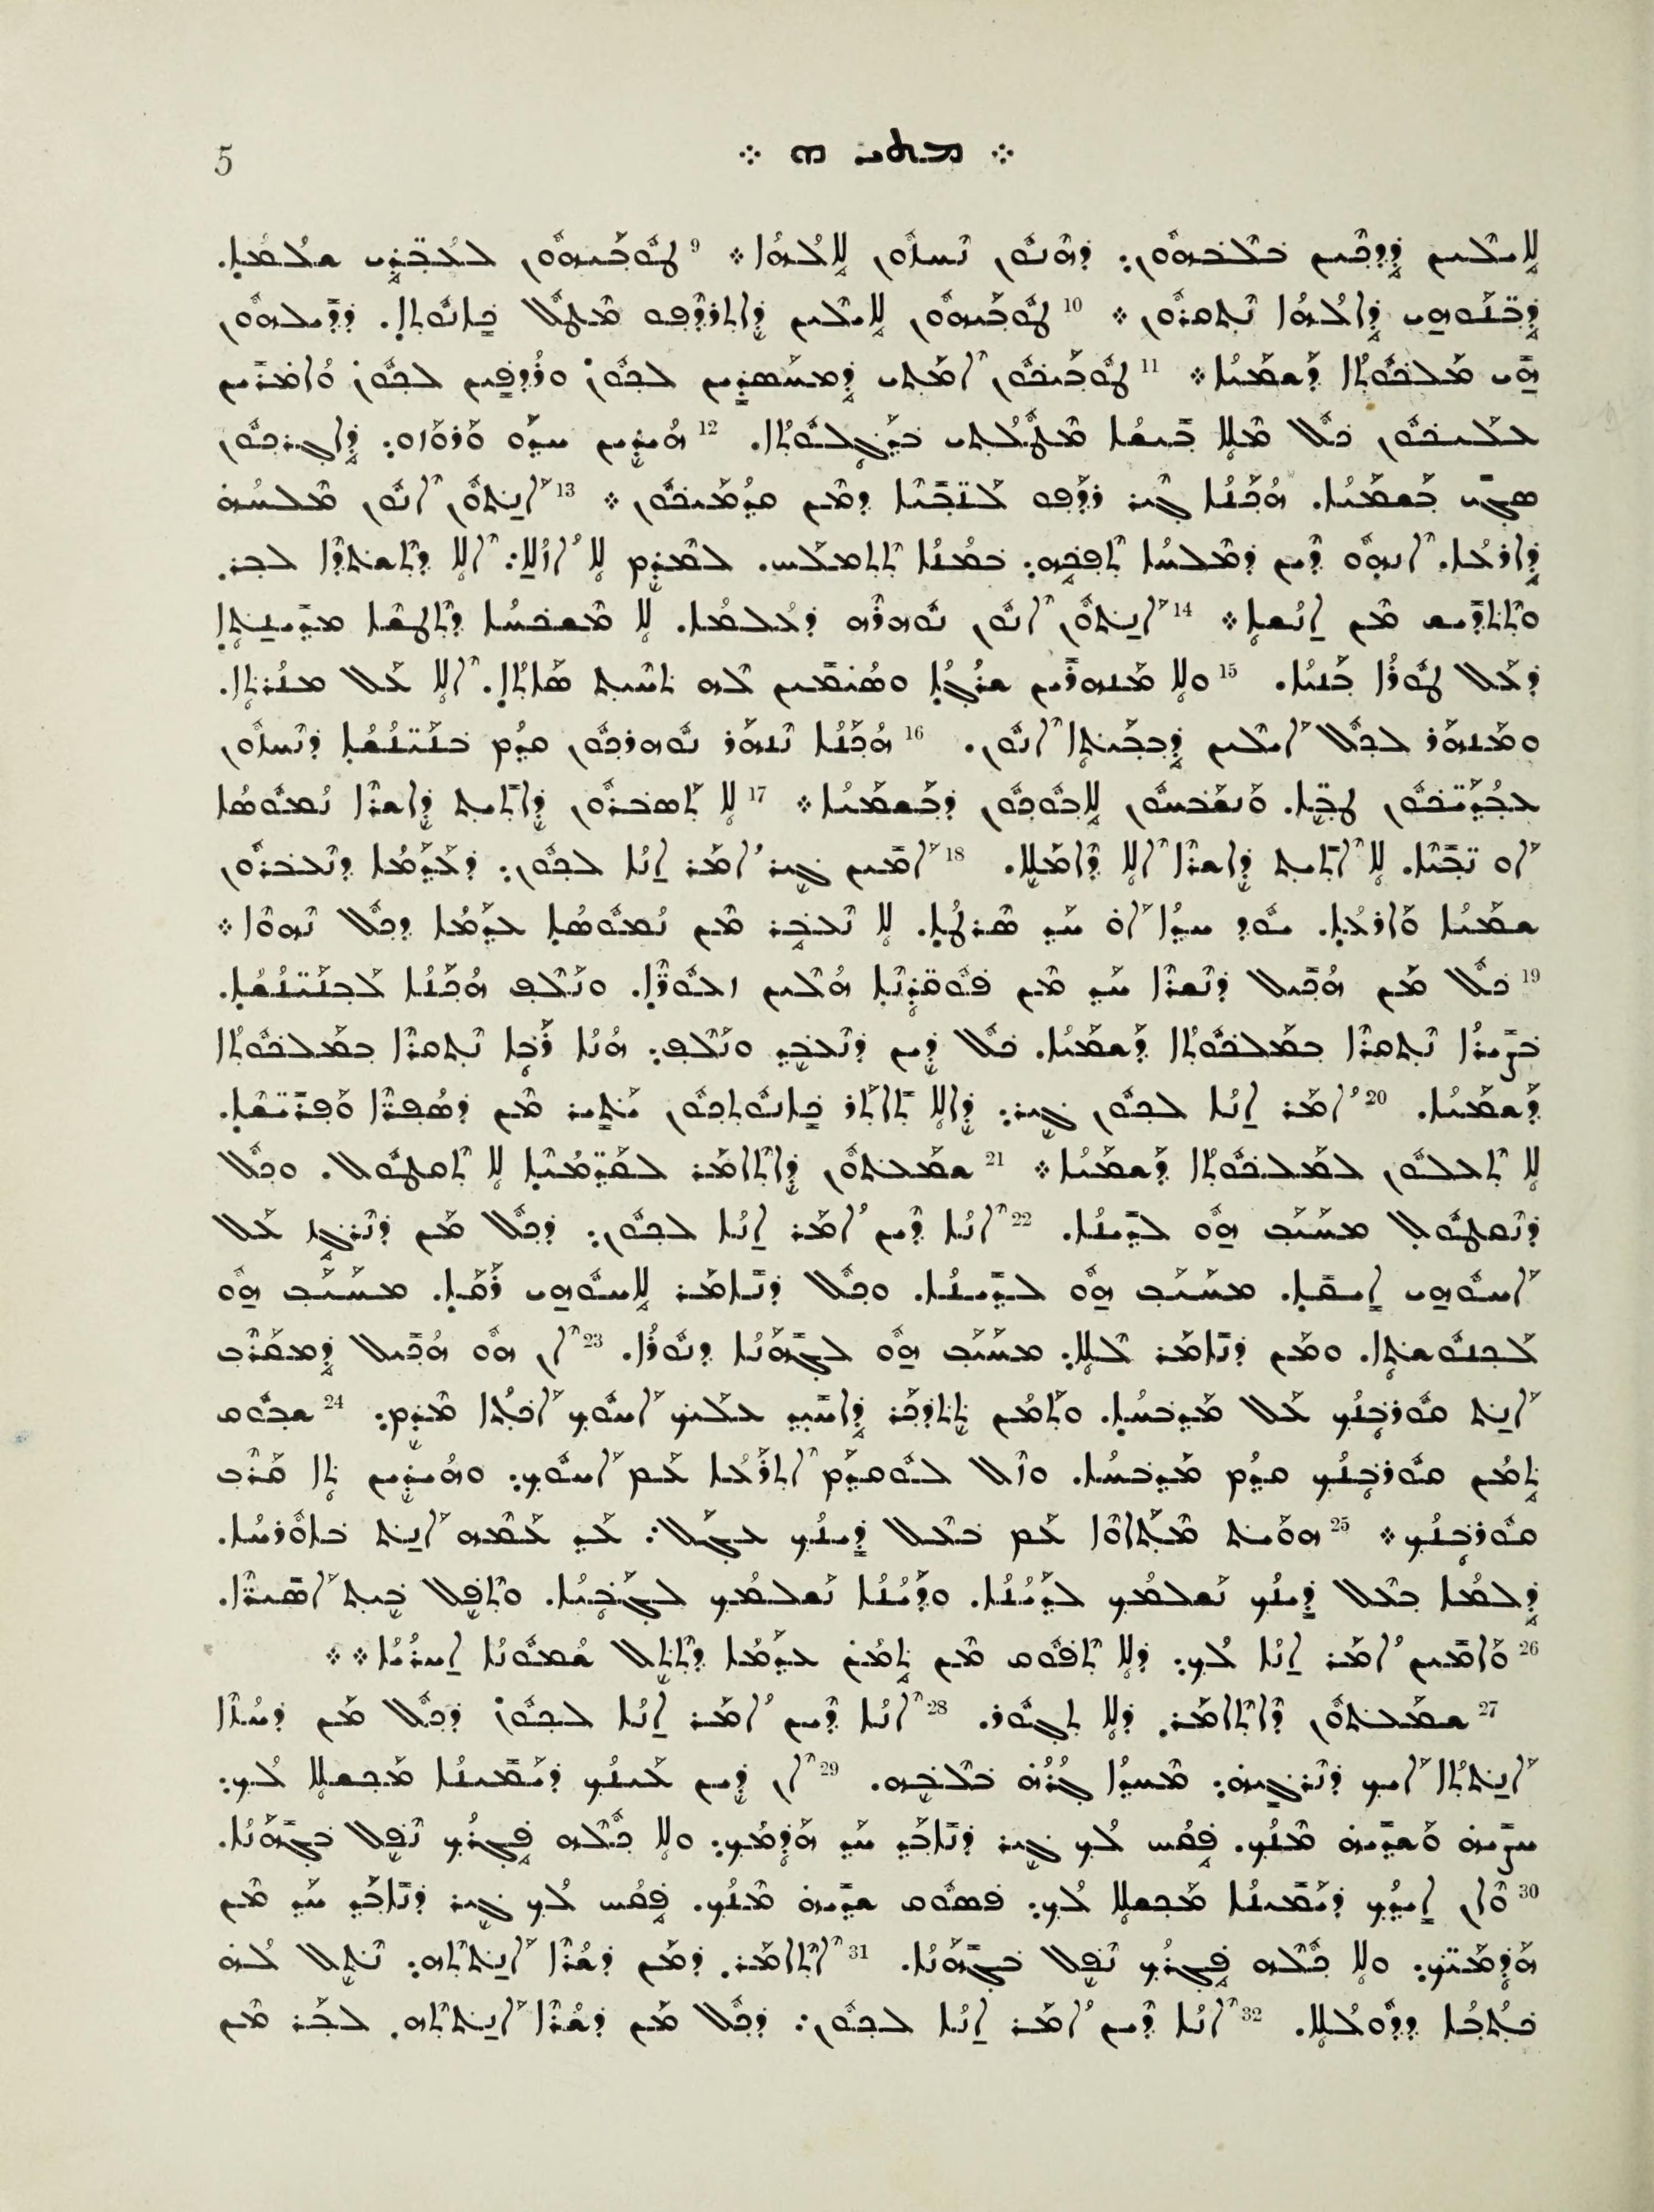 5 ܀ ܡܬܝ ܗ ܀
ܠܐܝܠܝܢ ܕܕܟܝܢ ܒܠܒܗܘܢ: ܕܗܢܘܢ ܢܚܙܘܢ ܠܐܠܗܐ ܀ 9 ܛܘܒܝܗܘܢ ܠܥܒ̈ܕܝ ܫܠܡܐ.
ܕܒ̈ܢܘܗܝ ܕܐܠܗܐ ܢܬܩܪܘܢ ܀ 10 ܛܘܒܝܗܘܢ ܠܐܝܠܝܢ ܕܐܬܪܕܦܘ ܡܛܠ ܟܐܢܘܬܐ. ܕܕܝܠܗܘܢ
ܗܝ ܡܠܟܘܬܐ ܕܫܡܝܐ ܀ 11 ܛܘܒܝܟܘܢ ܐܡܬܝ ܕܡܚܣܕܝܢ ܠܟܘܢ ܘܪܕܦܝܢ ܠܟܘܢ ܘܐܡܪܝܢ
ܥܠܝܟܘܢ ܟܠ ܡܠܐ ܒܝܫܐ ܡܛܠܬܝ ܒܕܓܠܘܬܐ. 12 ܗܝܕܝܢ ܚܕܘ ܘܪܘܙܘ: ܕܐܓܪܟܘܢ
ܣܓܝ ܒܫܡܝܐ. ܗܟܢܐ ܓܝܪ ܪܕܦܘ ܠܢܒ̈ܝܐ ܕܡܢ ܩܕܡܝܟܘܢ ܀ 13 ܐܢܬܘܢ ܐܢܘܢ ܡܠܚܗ
ܕܐܪܥܐ. ܐܢܗܘ ܕܝܢ ܕܡܠܚܐ ܬܦܟܗ: ܒܡܢܐ ܬܬܡܠܚ. ܠܡܕܡ ܠܐ ܐܙܠܐ: ܐܠܐ ܕܬܫܬܕܐ ܠܒܪ.
ܘܬܬܕܝܫ ܡܢ ܐܢܫܐ ܀ 14 ܐܢܬܘܢ ܐܢܘܢ ܢܘܗܪܗ ܕܥܠܡܐ. ܠܐ ܡܫܟܚܐ ܕܬܛܫܐ ܡܕܝܢܬܐ
ܕܥܠ ܛܘܪܐ ܒܢܝܐ. 15 ܘܠܐ ܡܢܗܪܝܢ ܫܪܓܐ ܘܣܝܡܝܢ ܠܗ ܬܚܝܬ ܣܐܬܐ. ܐܠܐ ܥܠ ܡܢܪܬܐ.
ܘܡܢܗܪ ܠܟܠ ܐܝܠܝܢ ܕܒܒܝܬܐ ܐܢܘܢ. 16 ܗܟܢܐ ܢܢܗܪ ܢܘܗܪܟܘܢ ܩܕܡ ܒܢܝ̈ܢܫܐ ܕܢܚܙܘܢ
ܥܒܕ̈ܝܟܘܢ ܛܒ̈ܐ. ܘܢܫܒܚܘܢ ܠܐܒܘܟܘܢ ܕܒܫܡܝܐ ܀ 17 ܠܐ ܬܣܒܪܘܢ ܕܐܬܝܬ ܕܐܫܪܐ ܢܡܘܣܐ
ܐܘ ܢܒ̈ܝܐ. ܠܐ ܐܬܝܬ ܕܐܫܪܐ ܐܠܐ ܕܐܡܠܐ. 18 ܐܡܝܢ ܓܝܪ ܐܡܪ ܐܢܐ ܠܟܘܢ: ܕܥܕܡܐ ܕܢܥܒܪܘܢ
ܫܡܝܐ ܘܐܪܥܐ. ܝܘܕ ܚܕܐ ܐܘ ܚܕ ܣܪܛܐ. ܠܐ ܢܥܒܪ ܡܢ ܢܡܘܣܐ ܥܕܡܐ ܕܟܠ ܢܗܘܐ ܀
19 ܟܠ ܡܢ ܗܟܝܠ ܕܢܫܪܐ ܚܕ ܡܢ ܦܘܩܕ̈ܢܐ ܗܠܝܢ ܙܥܘܪ̈ܐ. ܘܢܠܦ ܗܟܢܐ ܠܒܢܝ̈ܢܫܐ.
ܒܨܝܪܐ ܢܬܩܪܐ ܒܡܠܟܘܬܐ ܕܫܡܝܐ. ܟܠ ܕܝܢ ܕܢܥܒܕ ܘܢܠܦ: ܗܢܐ ܪܒܐ ܢܬܩܪܐ ܒܡܠܟܘܬܐ
ܕܫܡܝܐ. 20 ܐܡܪ ܐܢܐ ܠܟܘܢ ܓܝܪ: ܕܐܠܐ ܬܐܬܪ ܟܐܢܘܬܟܘܢ ܝܬܝܪ ܡܢ ܕܣܦܪ̈ܐ ܘܦܪ̈ܝܫܐ.
ܠܐ ܬܥܠܘܢ ܠܡܠܟܘܬܐ ܕܫܡܝܐ ܀ 21 ܫܡܥܬܘܢ ܕܐܬܐܡܪ ܠܩܕ̈ܡܝܐ ܠܐ ܬܩܛܘܠ. ܘܟܠ
ܕܢܩܛܘܠ ܡܚܝܒ ܗܘ ܠܕܝܢܐ. 22 ܐܢܐ ܕܝܢ ܐܡܪ ܐܢܐ ܠܟܘܢ: ܕܟܠ ܡܢ ܕܢܪܓܙ ܥܠ
ܐܚܘܗܝ ܐܝܩܐ. ܡܚܝܒ ܗܘ ܠܕܝܢܐ. ܘܟܠ ܕܢܐܡܪ ܠܐܚܘܗܝ ܪܩܐ. ܡܚܝܒ ܗܘ
ܠܟܢܘܫܬܐ. ܘܡܢ ܕܢܐܡܪ ܠܠܐ: ܡܚܝܒ ܗܘ ܠܓܗܢܐ ܕܢܘܪܐ. 23 ܐܢ ܗܘ ܗܟܝܠ ܕܡܩܪܒ
ܐܢܬ ܩܘܪܒܢܟ ܥܠ ܡܕܒܚܐ. ܘܬܡܢ ܬܬܕܟܪ ܕܐܚܝܕ ܥܠܝܟ ܐܚܘܟ ܐܟܬܐ ܡܕܡ: 24 ܫܒܘܩ
ܬܡܢ ܩܘܪܒܢܟ ܩܕܡ ܡܕܒܚܐ. ܘܙܠ ܠܘܩܕܡ ܐܬܪܥܐ ܥܡ ܐܚܘܟ: ܘܗܝܕܝܢ ܬܐ ܩܪܒ
ܩܘܪܒܢܟ ܀ 25 ܗܘܝܬ ܡܬܐܘܐ ܥܡ ܒܥܠ ܕܝܢܟ ܥܓܠ: ܥܕ ܥܡܗ ܐܢܬ ܒܐܘܪܚܐ.
ܕܠܡܐ ܒܥܠ ܕܝܢܟ ܢܫܠܡܟ ܠܕܝܢܐ. ܘܕܝܢܐ ܢܫܠܡܟ ܠܓܒܝܐ. ܘܬܦܠ ܒܝܬ ܐܣܝܪ̈ܐ.
26 ܘܐܡܝܢ ܐܡܪ ܐܢܐ ܠܟ: ܕܠܐ ܬܦܘܩ ܡܢ ܬܡܢ ܥܕܡܐ ܕܬܬܠ ܫܡܘܢܐ ܐܚܪܝܐ ܀ ܀
27 ܫܡܥܬܘܢ ܕܐܬܐܡܪ. ܕܠܐ ܬܓܘܪ. 28 ܐܢܐ ܕܝܢ ܐܡܪ ܐܢܐ ܠܟܘܢ ܕܟܠ ܡܢ ܕܚܙܐ
ܐܢܬܬܐ ܐܝܟ ܕܢܪܓܝܗ: ܡܚܕܐ ܓܪܗ ܒܠܒܗ. 29 ܐܢ ܕܝܢ ܥܝܢܟ ܕܝܡܝܢܐ ܡܟܫܠܐ ܠܟ:
ܚܨܝܗ ܘܫܕܝܗ ܡܢܟ. ܦܩܚ ܠܟ ܓܝܪ ܕܢܐܒܕ ܚܕ ܗܕܡܟ: ܘܠܐ ܟܠܗ ܦܓܪܟ ܢܦܠ ܒܓܗܢܐ.
30 ܘܐܢ ܐܝܕܟ ܕܝܡܝܢܐ ܡܟܫܠܐ ܠܟ: ܦܣܘܩ ܫܕܝܗ ܡܢܟ. ܦܩܚ ܠܟ ܓܝܪ ܕܢܐܒܕ ܚܕ ܡܢ
ܗܕܡܝ̈ܟ: ܘܠܐ ܟܠܗ ܦܓܪܟ ܢܦܠ ܒܓܗܢܐ. 31 ܐܬܐܡܪ. ܕܡܢ ܕܫܪܐ ܐܢܬܬܗ: ܢܬܠ ܠܗ
ܟܬܒܐ ܕܕܘܠܠܐ. 32 ܐܢܐ ܕܝܢ ܐܡܪ ܐܢܐ ܠܟܘܢ: ܕܟܠ ܡܢ ܕܫܪܐ ܐܢܬܬܗ. ܠܒܪ ܡܢ